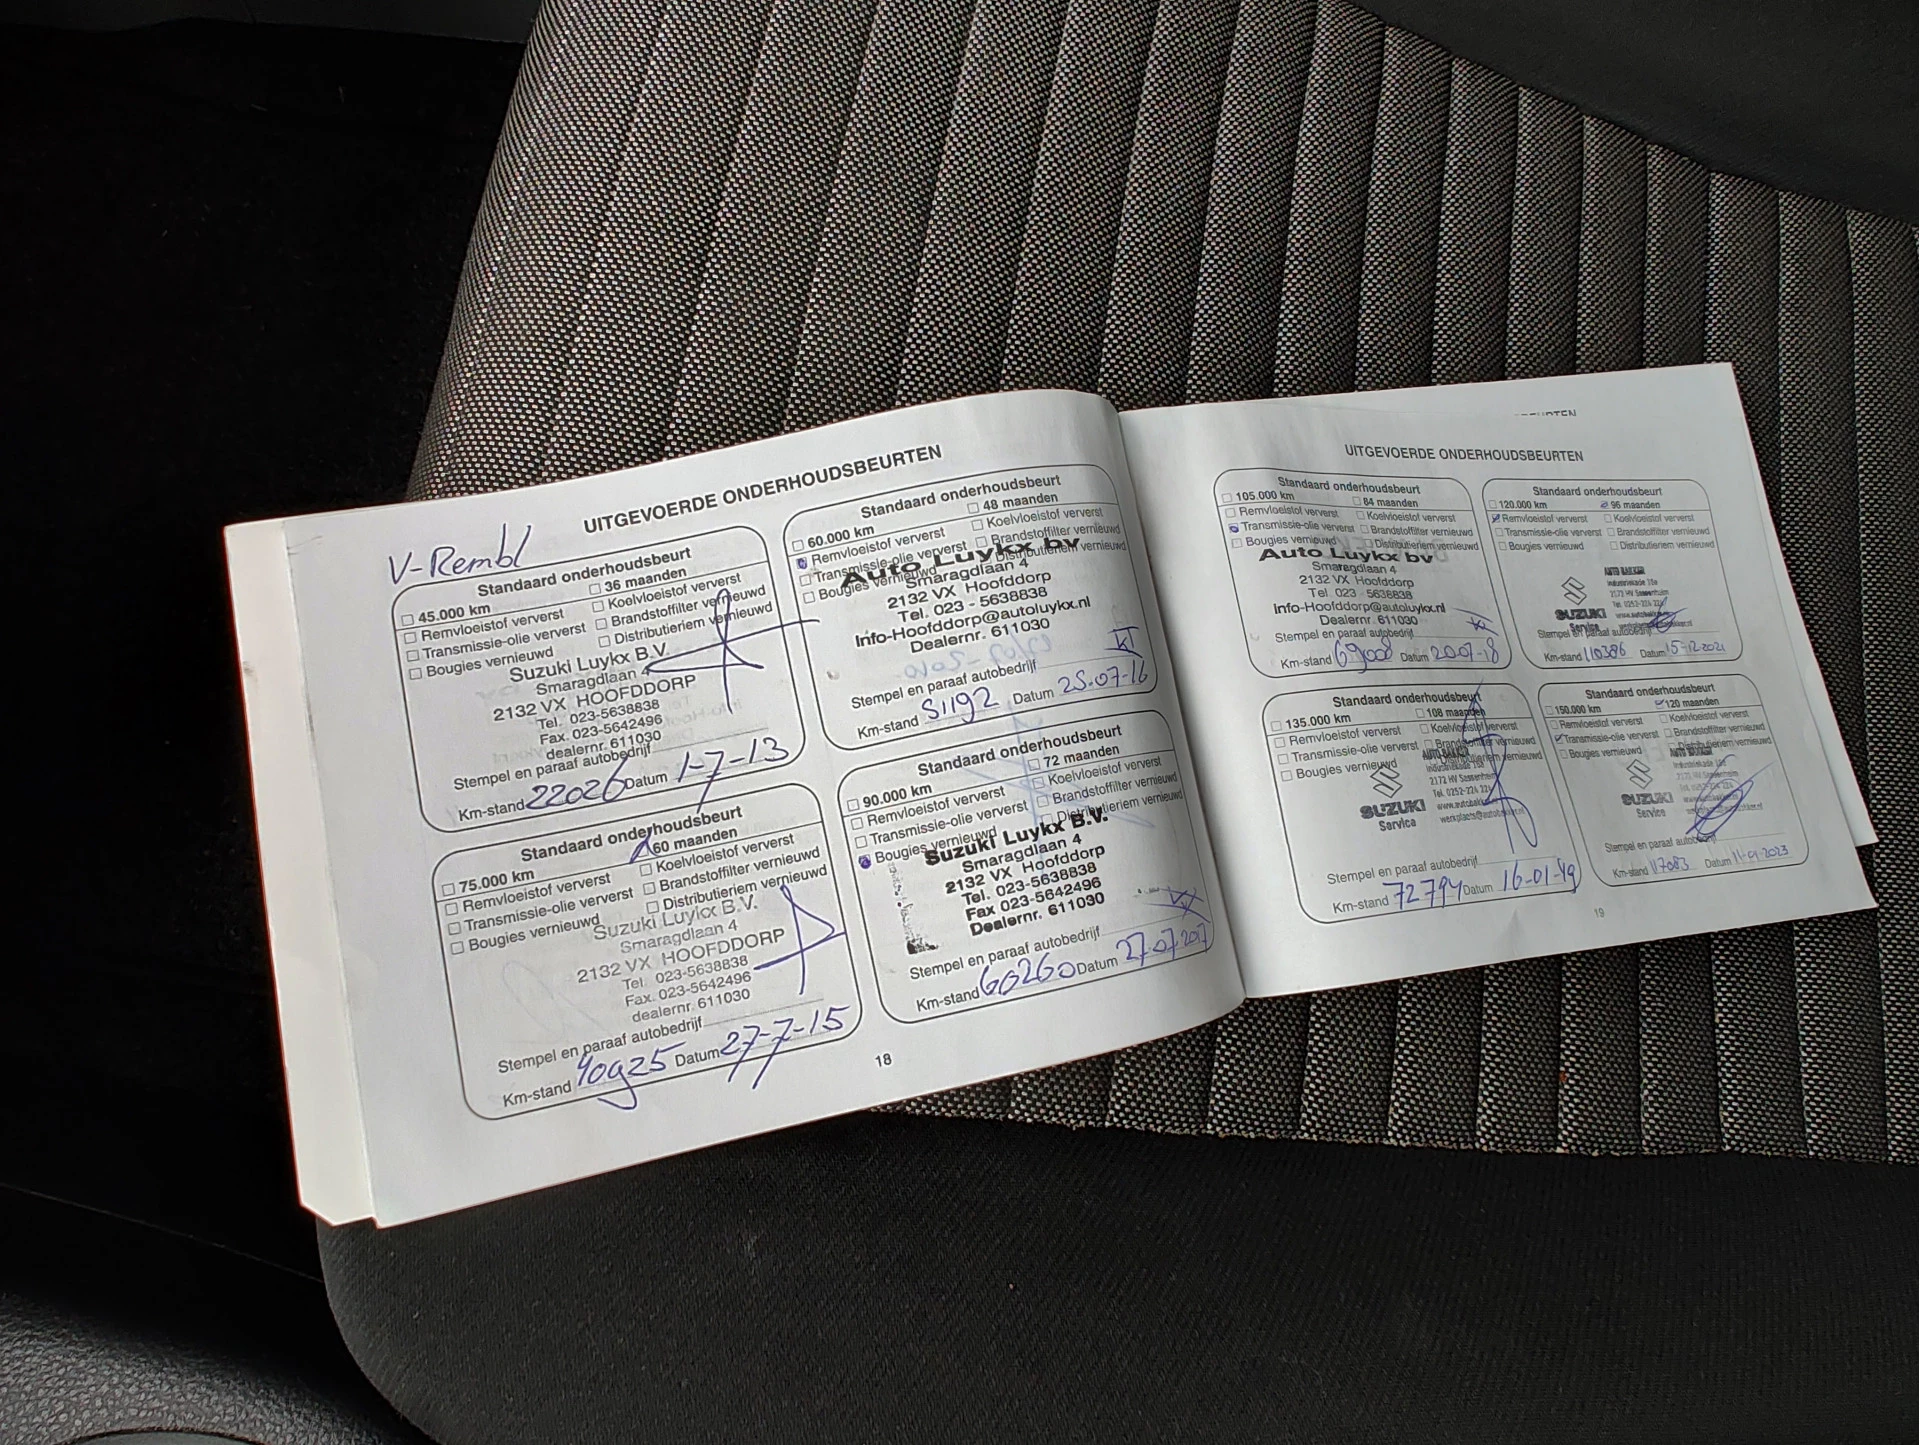 UITGEVOERDE ONDERHOUDSBEURTEN
V-Rembl
Standaard onderhoudsbeurt
45.000 km 36 maanden
Remvloeistof ververst Koelvloeistof ververst
Transmissie-olie ververst Brandstoffilter vernieuwd
Bougies vernieuwd Distributieriem vernieuwd
Suzuki Luykx B.V.
Smaragdlaan 4
2132 VX HOOFDDORP
Tel. 023-5638838
Fax. 023-5642496
dealernr. 611030
Stempel en paraaf autobedrijf
Km-stand 22026 Datum 1-7-13
Standaard onderhoudsbeurt
60.000 km 48 maanden
Remvloeistof ververst Koelvloeistof ververst
Transmissie-olie ververst Brandstoffilter vernieuwd
Bougies vernieuwd Distributieriem vernieuwd
Auto Luykx bv
Smaragdlaan 4
2132 VX Hoofddorp
Tel. 023 - 5638838
Info-Hoofddorp@autoluykx.nl
Dealernr. 611030
Stempel en paraaf autobedrijf
Km-stand 51192 Datum 25-07-16
Standaard onderhoudsbeurt
75.000 km 60 maanden
Remvloeistof ververst Koelvloeistof ververst
Transmissie-olie ververst Brandstoffilter vernieuwd
Bougies vernieuwd Distributieriem vernieuwd
Suzuki Luykx B.V.
Smaragdlaan 4
2132 VX HOOFDDORP
Tel. 023-5638838
Fax. 023-5642496
dealernr. 611030
Stempel en paraaf autobedrijf
Km-stand 40925 Datum 27-7-15
Standaard onderhoudsbeurt
90.000 km 72 maanden
Remvloeistof ververst Koelvloeistof ververst
Transmissie-olie ververst Brandstoffilter vernieuwd
Bougies vernieuwd Distributieriem vernieuwd
Suzuki Luykx B.V.
Smaragdlaan 4
2132 VX Hoofddorp
Tel. 023-5638838
Fax 023-5642496
Dealernr. 611030
Stempel en paraaf autobedrijf
Km-stand 60260 Datum 27.07.2017
18
UITGEVOERDE ONDERHOUDSBEURTEN
Standaard onderhoudsbeurt
105.000 km 84 maanden
Remvloeistof ververst Koelvloeistof ververst
Transmissie-olie ververst Brandstoffilter vernieuwd
Bougies vernieuwd Distributieriem vernieuwd
Auto Luykx bv
Smaragdlaan 4
2132 VX Hoofddorp
Tel. 023 - 5638838
Info-Hoofddorp@autoluykx.nl
Dealernr. 611030
Stempel en paraaf autobedrijf
Km-stand 69008 Datum 20-07-18
Standaard onderhoudsbeurt
120.000 km 96 maanden
Remvloeistof ververst Koelvloeistof ververst
Transmissie-olie ververst Brandstoffilter vernieuwd
Bougies vernieuwd Distributieriem vernieuwd
AUTO BAKKER
2172 HV Sassenheim
Tel. 0252-224 221
SUZUKI
Service
Stempel en paraaf autobedrijf
Km-stand 110386 Datum 15-12-2021
Standaard onderhoudsbeurt
135.000 km 108 maanden
Remvloeistof ververst Koelvloeistof ververst
Transmissie-olie ververst Brandstoffilter vernieuwd
Bougies vernieuwd Distributieriem vernieuwd
AUTO BAKKER
2172 HV Sassenheim
Tel. 0252-224 221
SUZUKI
Service
Stempel en paraaf autobedrijf
Km-stand 72794 Datum 16-01-49
Standaard onderhoudsbeurt
150.000 km 120 maanden
Remvloeistof ververst Koelvloeistof ververst
Transmissie-olie ververst Brandstoffilter vernieuwd
Bougies vernieuwd Distributieriem vernieuwd
2172 HV Sassenheim
SUZUKI
Service
Stempel en paraaf autobedrijf
Km-stand 117083 Datum 11-01-2023
19